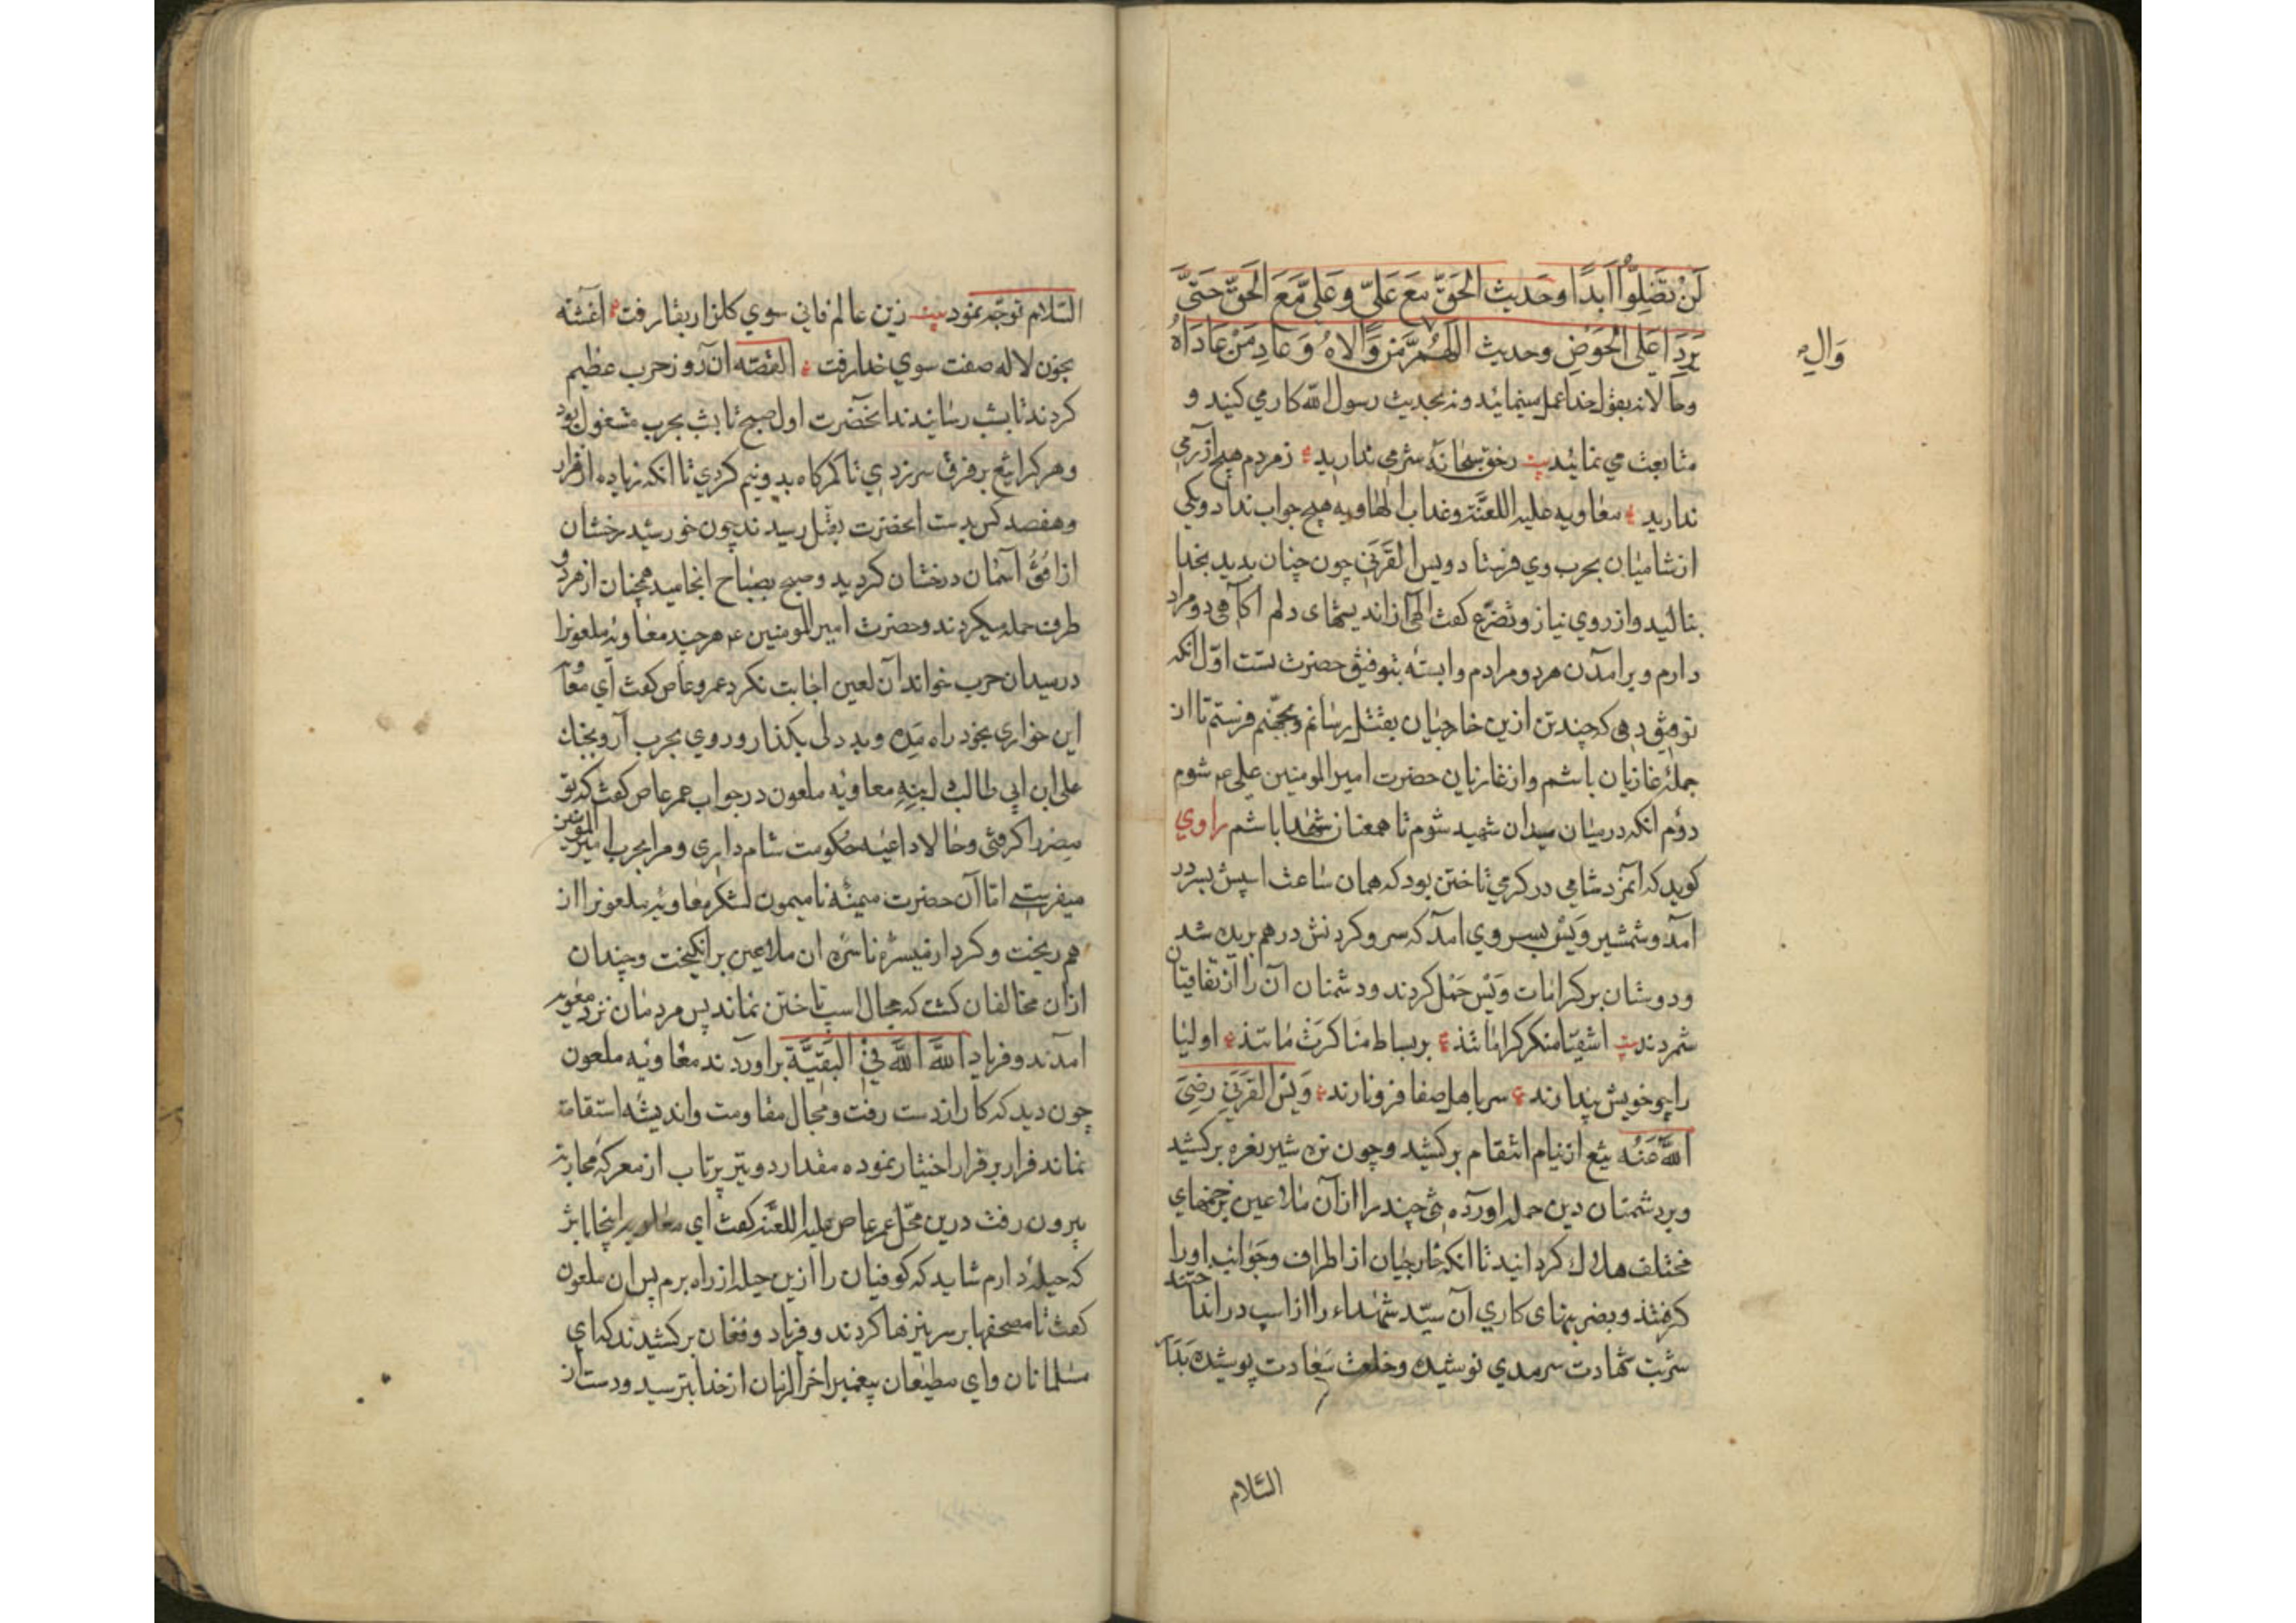 لَنْ تَضِلُّوا اَبَدًا وحَديث الحَقّ مَعَ عَلىّ وعَلىّ مَّعَ الحَقّ حَتىّ
يَرِدَا عَلى الحَوْضِ وحديث اللّهُمّ مَن وَّالاهُ وَ عَادِ مَنْ عَادَاهُ
وَالِ
وحالا نه بقول خدا عمل مينمائيد ونه بحديث رسول الله كار مي كنيد و
متابعت مي نمائيد بيت زحق سبحانه شرمي نداريد زمردم هيچ آزرمي
نداريد معاويه عليه اللعنة وعذاب الهاويه هيچ جواب نداد ويكي
از شاميان بحرب وي فرستاد ويس القَرَنى چون چنان بديد بخدا
بناليد واز روي نياز وتضرّع كفت الهى از انديشهاى دلم اكاهى دو مراد
دارم وبرامدن هر دو مرادم وابسته بتوفيق حضرت تست اوّل انكه
توفيق دهى كه چند تن ازين خارجيان بقتل رسانم وبجهنم فرستم تا از
جملۀ غازيان باشم واز غازيان حضرت امير المومنين على عم شوم
دوّم انكه درميان ميدان شهيد شوم تا همعنان شهدا باشم راوي
كويد كه آنمرد شامي در كرمي تاختن بود كه همان ساعت اسپش بسر در
آمد وشمشير وَيْس بسر وي امد كه سر وكردنش درهم بريده شد
ودوستان بر كرامات وَيْس حَمْل كردند ودشمنان آن را از اتفاقيات
شمردند بيت اشقيا منكر كرامات‌اند بر بساط مناكرت مات‌اند اوليا
را چو خويش پندارند سر باهل صفا فرو نارند وَيْس القَرَنى رضِىَ
اللّه عَنْه تيغ از نيام انتقام بر كشيد وچون نره شير نعره بر كشيد
وبر دشمنان دين حمله اورده تنى چند را از آن ملاعين بزخمهاي
مختلف هلاك كردانيد تا انكه خارجيان از اطراف وجَوانب او را
كرفتند وبضربتهاى كاري آن سيّد شهداء را از اسپ در انداختند
شربت شهادت سرمدي نوشيده وخلعت سَعادت پوشيده بَدار
السّلام
السّلام توجّه نمود بيت زين عالم فاني سوي كلزار بقا رفت اغشته
بخون لاله صفت سوي خدا رفت القصّه ان روز حرب عظيم
كردند تا بشب رسانيدند انحضرت اول صبح تا بشب بحرب مشغول بود
وهر كرا تيغ بر فرق سر زدي تا كمركاه بدونيم كردي تا انكه زياده از هزار
وهفصد كس بدست انحضرت بقتل رسيدند چون خورشيد رخشان
از اُفُق آسمان درخشان كرديد وصبح بصباح انجاميد همچنان از هر دو
طرف حمله ميكردند وحضرت امير المومنين عم هر چند معاويه ملعونرا
درميدان حرب خواند آن لعين اجابت نكرد عمرو عاص كفت اي معاويه
اين خواري بخود راه مَده وبد دلى بكذار وروي بحرب آر وبجنك
على ابن ابي طالب معاويه ملعون درجواب عمر عاص كفت كه تو
مصر را كرفتى وحالا داعيۀ حكومت شام داري ومرا بحرب امير المؤمنين
ميفرستي اما آن حضرت ميمنۀ ناميمون لشكر معاويه ملعونرا از
هم ريخت وكرد از ميسرۀ ناسره ان ملاعين بر انكيخت وچندان
ازان مخالفان كشت كه مجال اسپ تاختن نماند پس مردمان نزد معويه
امدند وفرياد اللّهَ اللّهَ فِى البَقِيَّة براوردند معاويه ملعون
چون ديد كه كار از دست رفت ومجال مقاومت وانديشه استقامت
نماند فرار بر قرار اختيار نموده مقدار دو تير پرتاب از معركۀ محاربه
بيرون رفت درين محلّ عمر عاص عليه اللعنه كفت اي معاويه اينجا باش
كه حيلۀ دارم شايد كه كوفيان را ازين حيله از راه برم پس ان ملعون
كفت تا مصحفها بر سر نيزها كردند وفرياد وفغان بر كشيدند كه اي
مسلمانان واي مطيعان پيغمبر اخر الزمان از خدا بترسيد ودست از